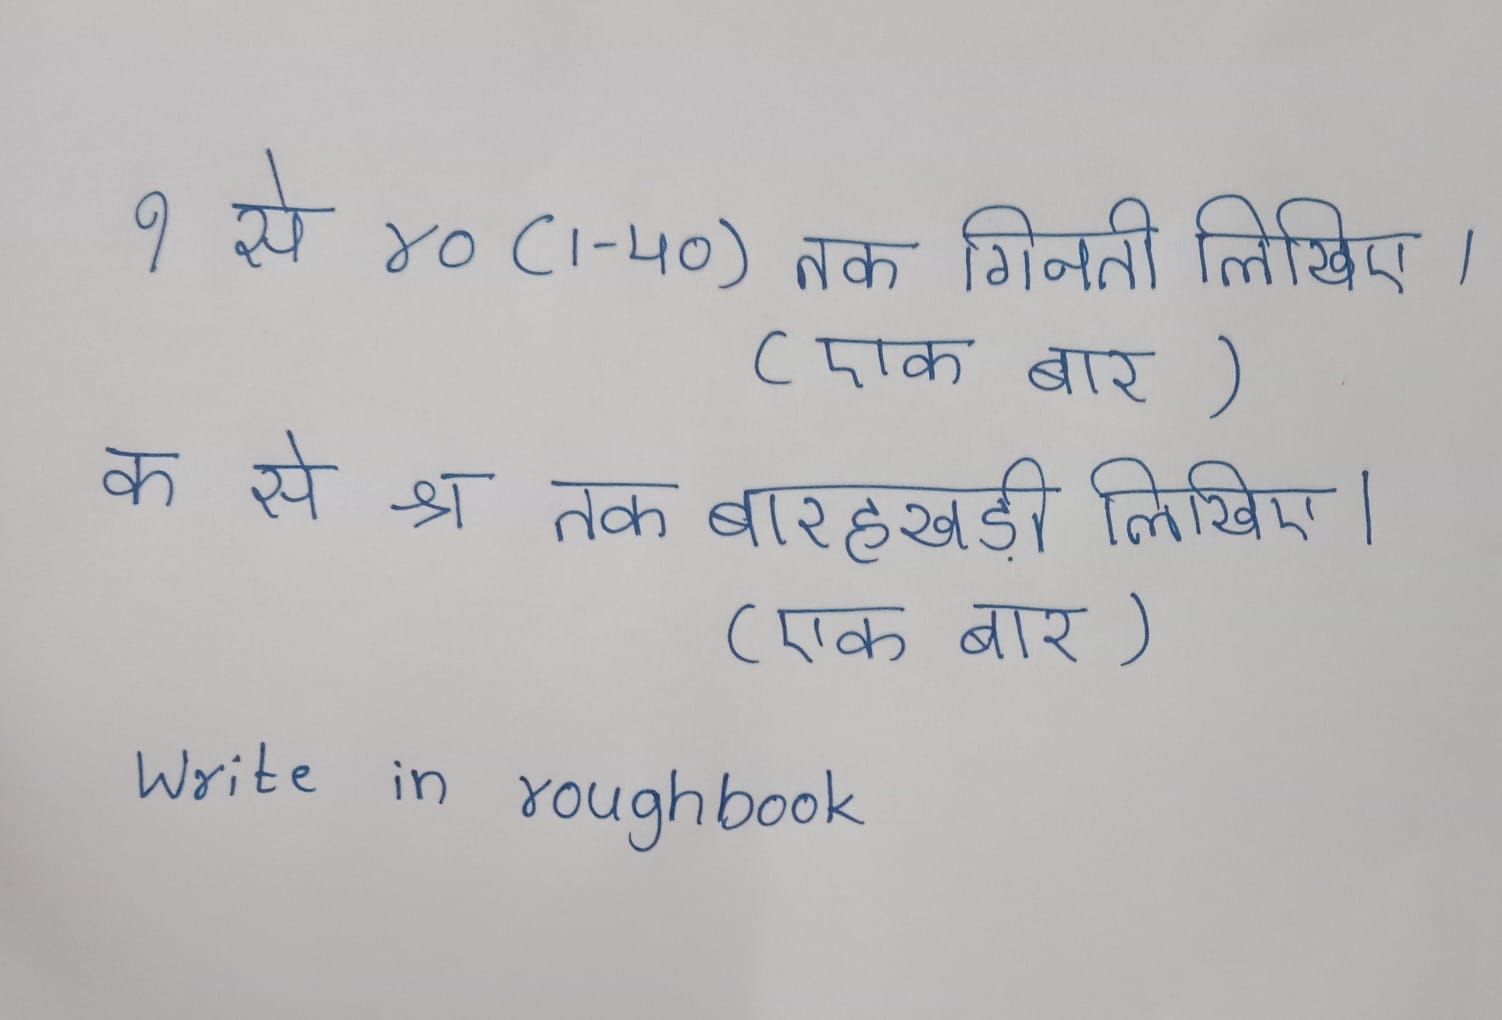 १ से ४० (1-40) तक गिनती लिखिए ।
(एक बार )
क से श्र तक बारहखड़ी लिखिए ।
(एक बार )
Write in roughbook